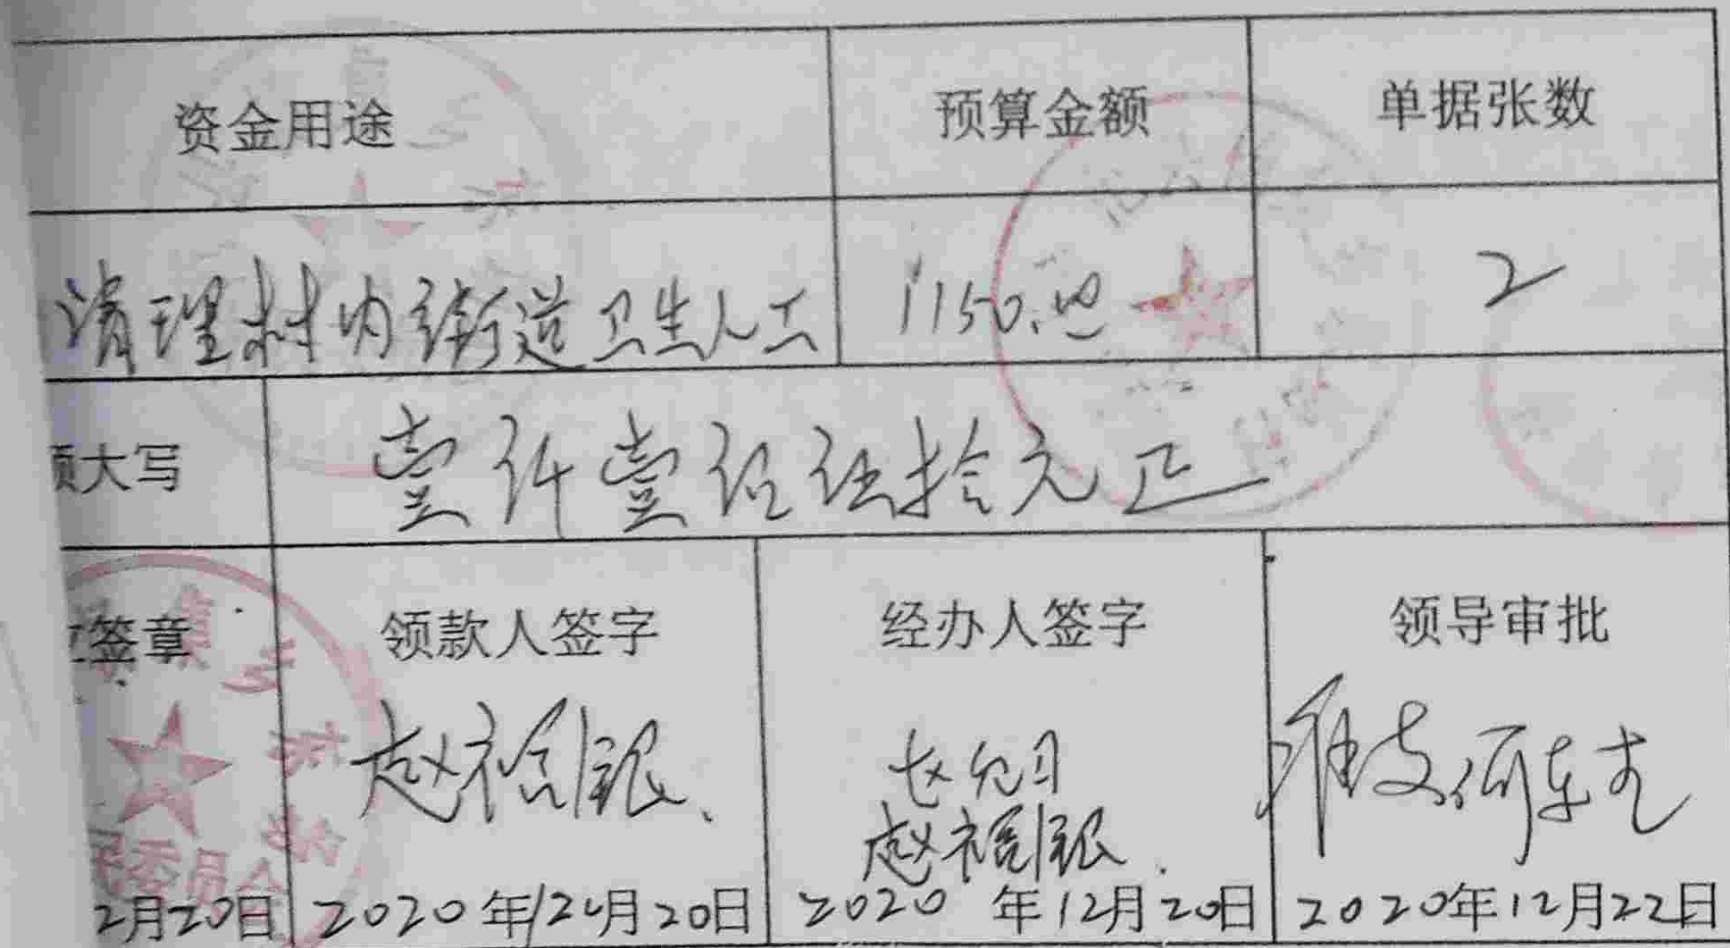 资金用途 预算金额 单据张数
清理村内街道卫生人工 1150.00 2
大写 壹仟壹佰伍拾元正
签章 领款人签字 经办人签字 领导审批
赵福银
赵福银
委员会
2月20日 2020年12月20日 2020年12月20日 2020年12月22日